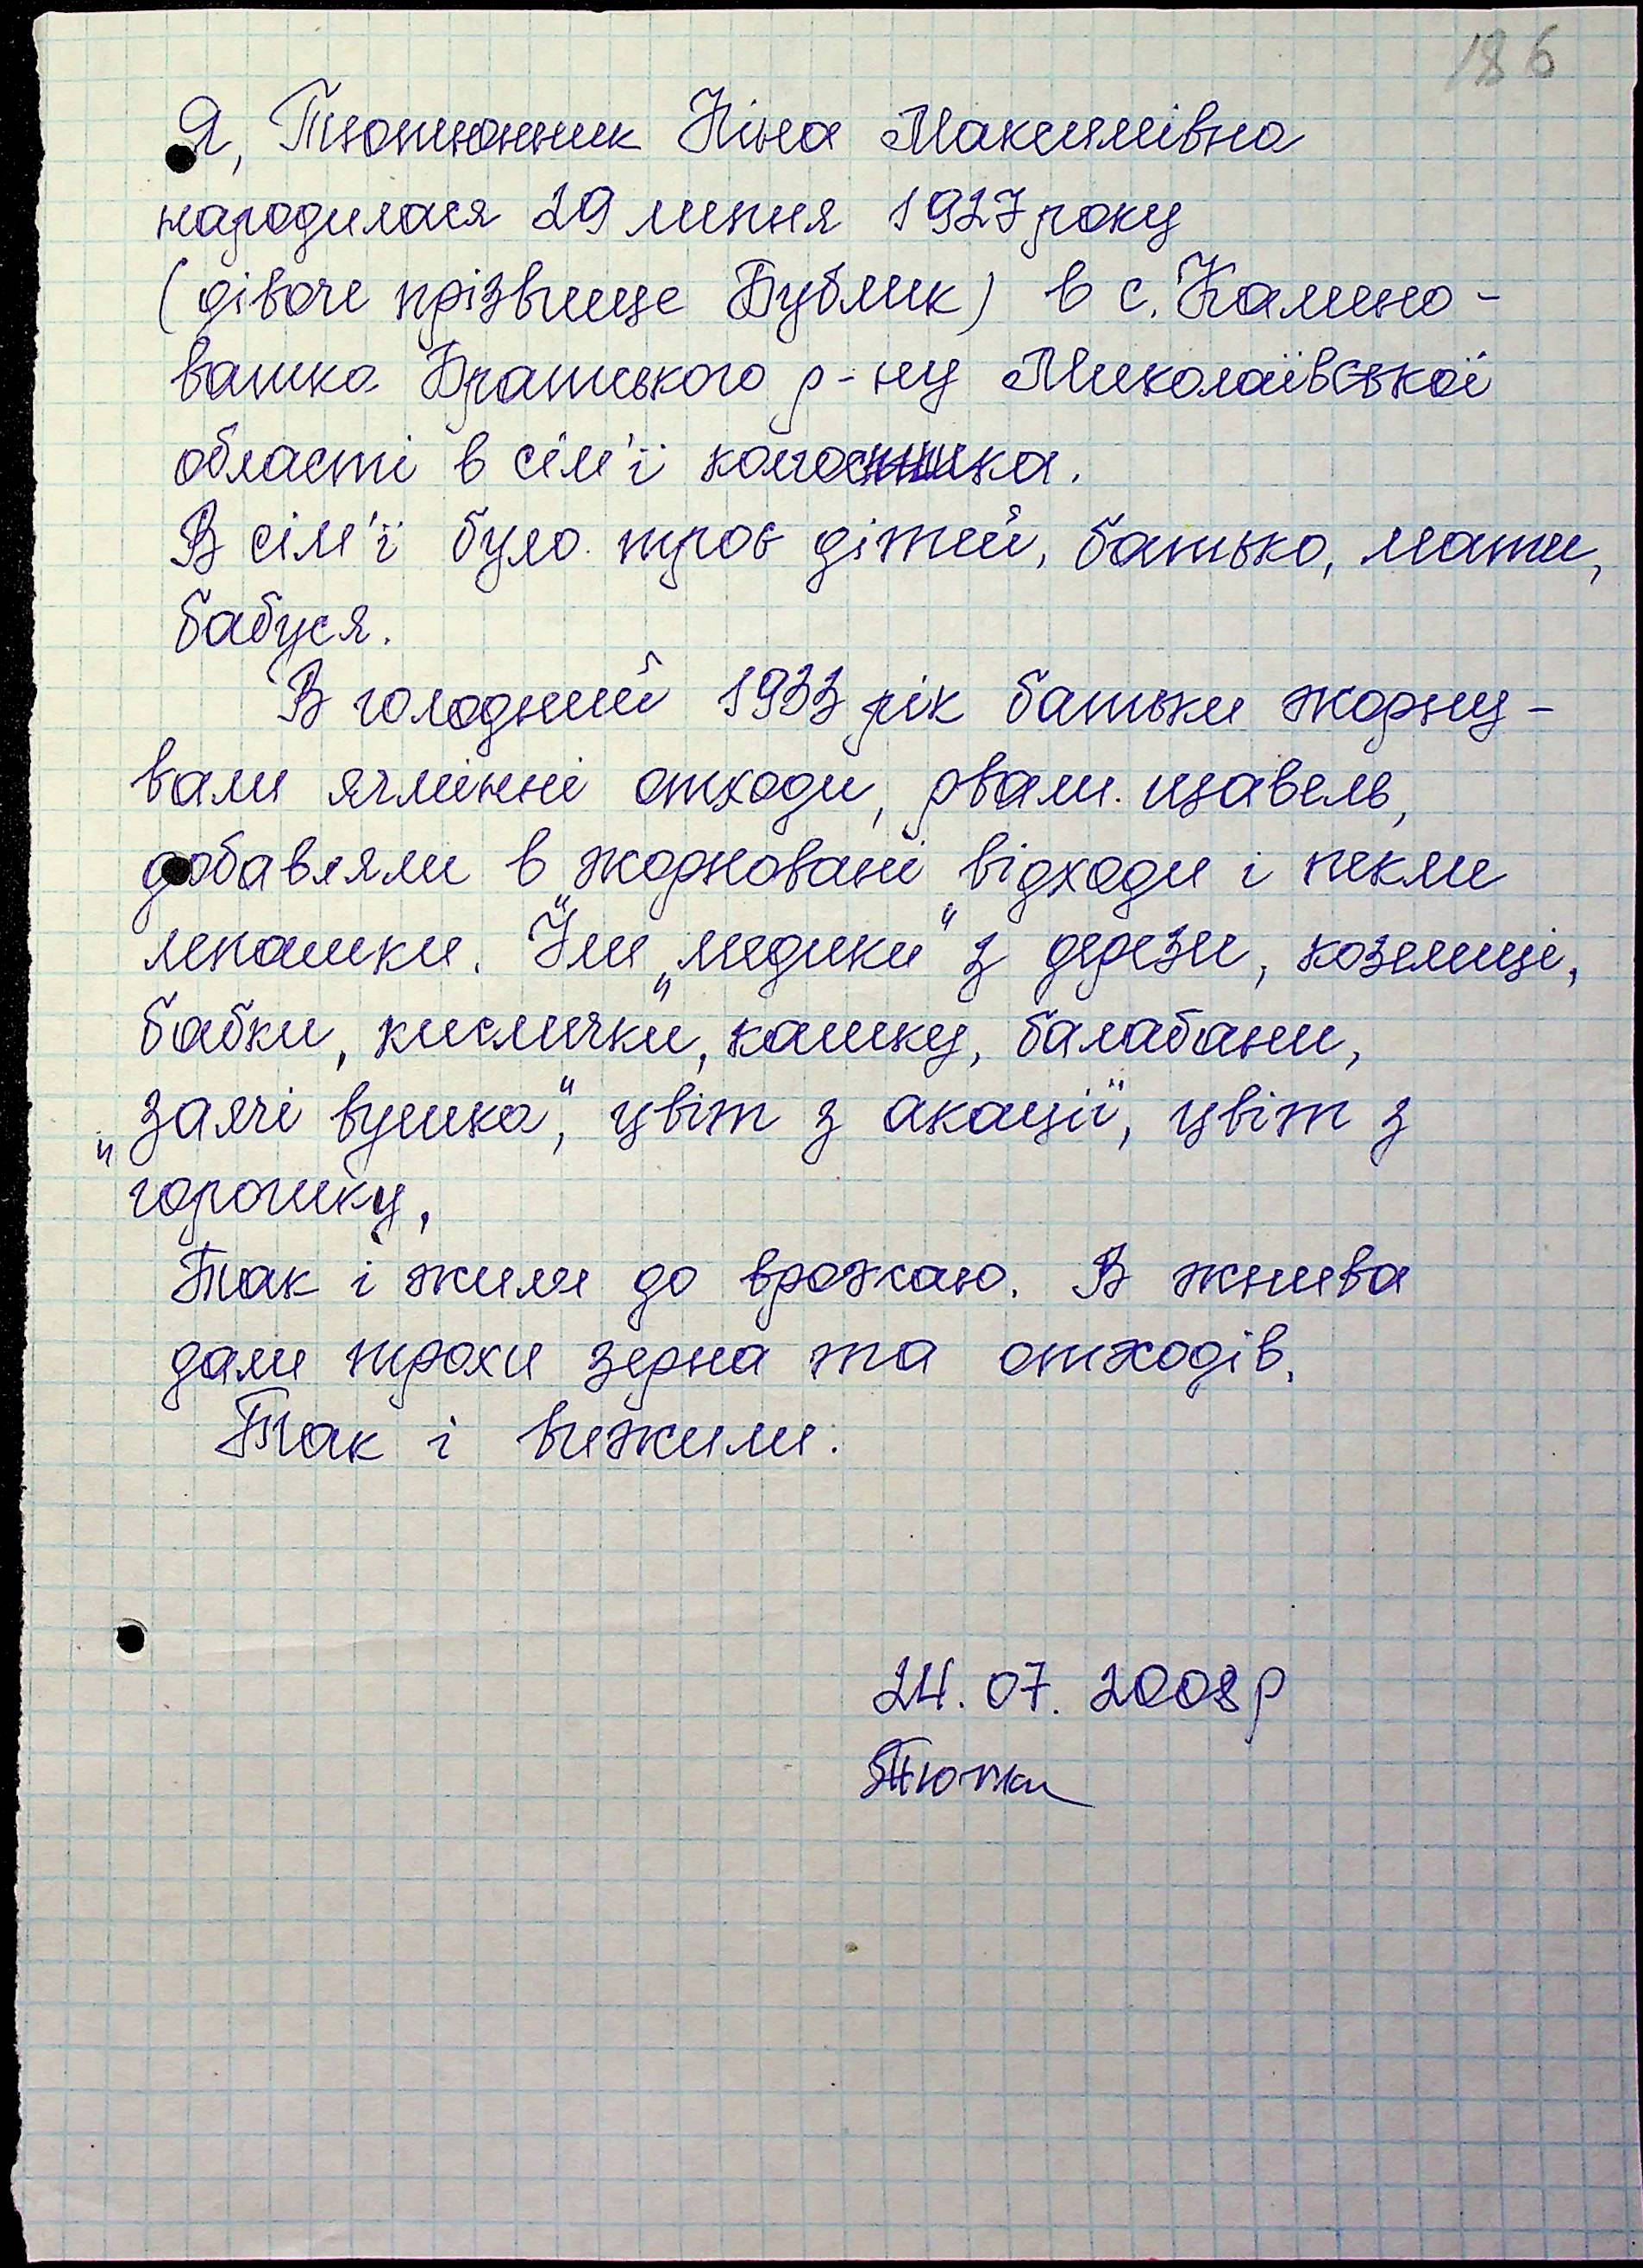 186
Я, Тютюнник Ніна Максимівна
народилася 29 липня 1927 року
(дівоче прізвище Бублик) в с. Калино-
ватка Братського р-ну Миколаївської
області в сім'ї колгоспника.
В сім'ї було троє дітей, батько, мати,
бабуся.
В голодний 1933 рік батьки жорну-
вали ячмінні отходи, рвали щавель,
добавляли в „жорновані" відходи і пекли
лепашки. Їли „медики" з дерези, козелиці,
бабки, кислички, кашку, балабани,
„заячі вушка", цвіт з акації, цвіт з
горошку.
Так і жили до врожаю. В жнива
дали трохи зерна та отходів.
Так і вижили.
24.07.2008р